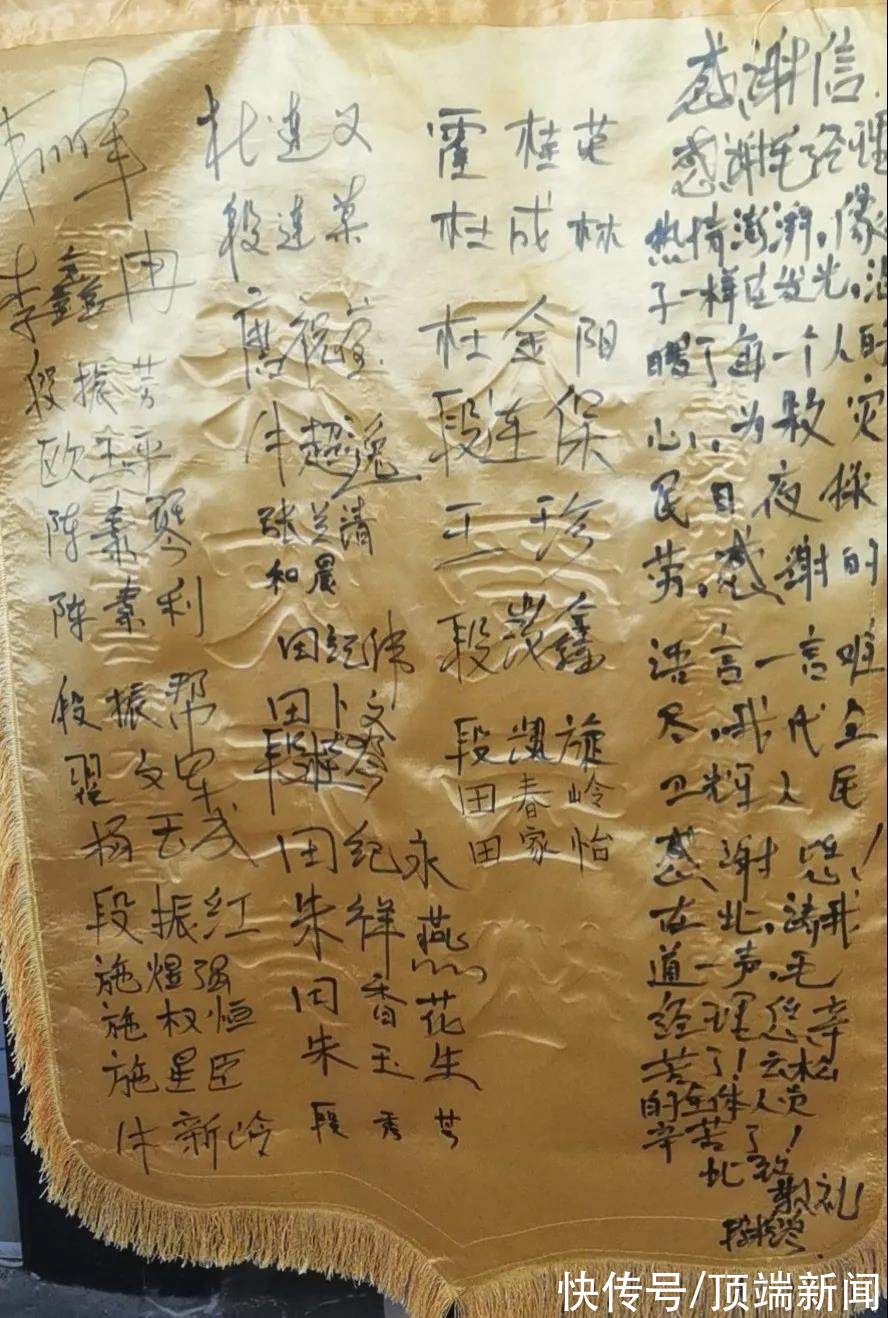 感谢信
感谢毛经理
热情澎湃,像
子一样在发光,温
暖了每一个人的
心,为救灾
民日夜操
劳,感谢的
语言一言难
尽,我代全
卫辉人民
感谢您!
在此,请我
道一声,毛
经理您辛
苦了!云松
的全体人员
辛苦了!
此致
敬礼
霍桂英
杜成林
杜金阳
段连保
王珍
段崇鑫
段淇旋
田春岭
田家怡
杜连义
段连菜
牛超逸
张兰清
和晨
田纪伟
田卜文
田纪永
朱祥燕
田香花
朱玉生
段秀芳
李鑫冉
段振芳
欧玉平
陈素琴
陈素利
段振帮
杨玉成
段振红
施煜强
施权恒
施星臣
牛新岭
快传号/顶端新闻